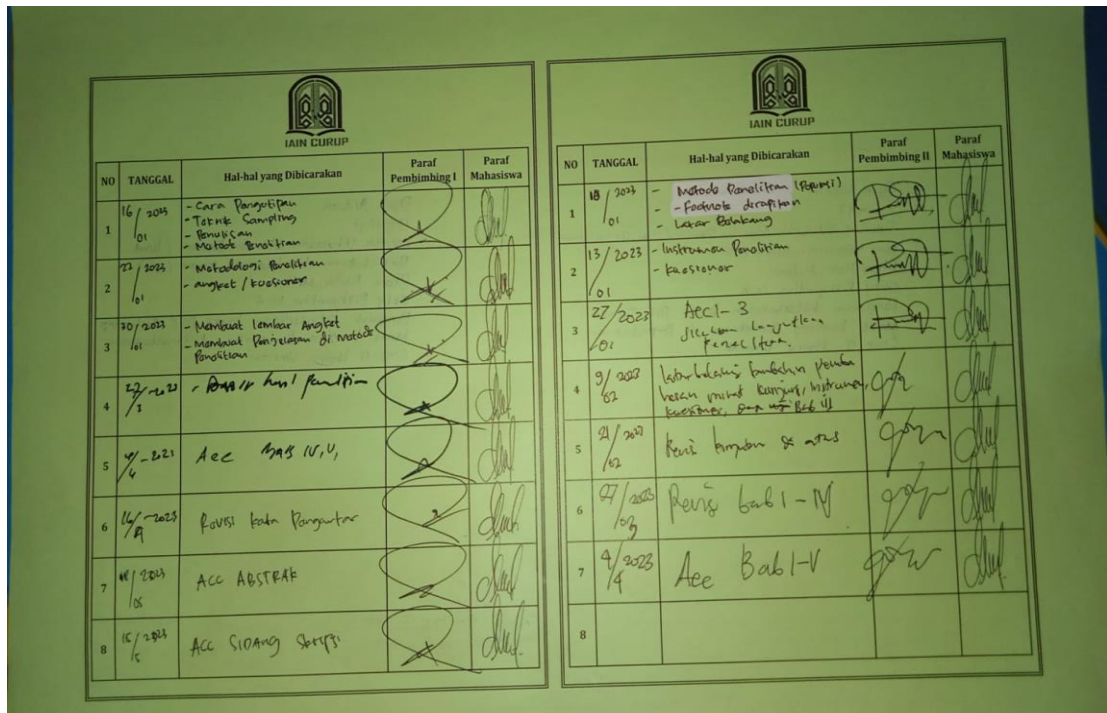 IAIN CURUP
NO TANGGAL Hal-hal yang Dibicarakan Paraf Pembimbing I Paraf Mahasiswa
1 16/01 2023 - Cara Pengutipan
- Teknik Sampling
- Penulisan
- Metode Penelitian
2 27/01 2023 - Metodologi Penelitian
- angket / kuesioner
3 30/01 2023 - Membuat lembar Angket
- Membuat Penjelasan di metode
Penelitian
4 hasil
5 Acc Bab IV, V,
6 2023 Revisi kata Pengantar
7 2023 ACC ABSTRAK
8 15/5 2023 ACC SIDANG Skripsi
IAIN CURUP
NO TANGGAL Hal-hal yang Dibicarakan Paraf Pembimbing II Paraf Mahasiswa
1 2023 - Metode Penelitian (Populasi)
01 - Footnote dirapikan
- Latar Belakang
2 13/01 2023 - Instrumen Penelitian
- kuesioner
3 27/01 2023 Acc 1-3
Silahkan Lanjutkan
Penelitian.
4 9/02 2023 latar belakang tambahin
minat kunjung, Instrumen,
kuesioner, Bab III
5 21/02 2023 Revisi
6 27/03 2023 Revisi bab I-IV
7 4/4 2023 Acc Bab I-V
8